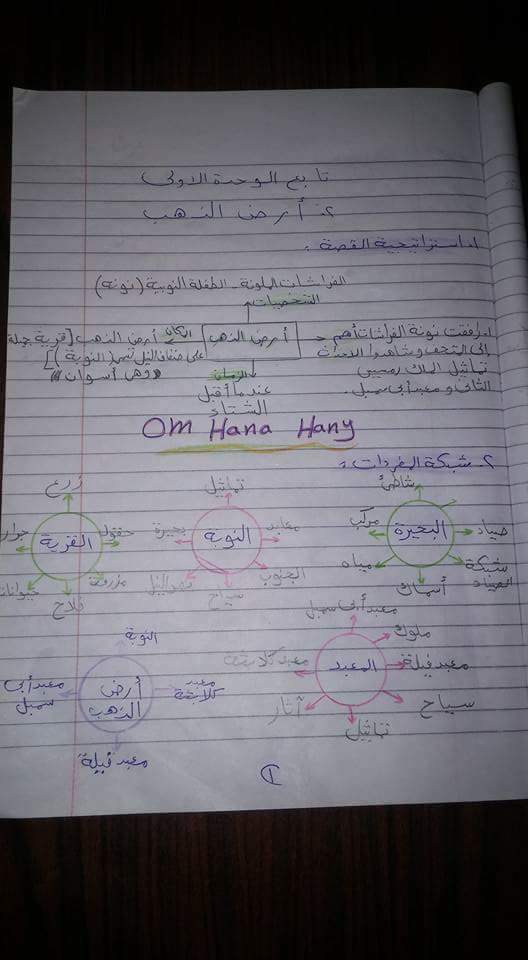 تابع الوحدة الاولى
٢- أرض الذهب
١- استراتيجية القصة :
الفراشات الملونة - الطفلة النوبية (نونة)
الشخصيات
أرض الذهب
المكان
أرض الذهب [قرية جميلة
على ضفاف النيل تسمى (النوبة)]
((وهى أسوان))
الزمان
عندما أقبل
الشتاء
رافقت نونة الفراشات
إلى المتحف وشاهدوا
تماثيل الملك رمسيس
الثانى و معبد أبى سمبل.
الأحداث
Om Hana Hany
٢- شبكة المفردات :
البحيرة
شاطئ
صياد
شبكة
الصياد
أسماك
مياه
مركب
النوبة
تماثيل
معابد
الجنوب
سياح
نهر النيل
بحيرة
القرية
زرع
حقول
مزرعة
فلاح
حيوانات
المعبد
معبد أبى سمبل
ملوك
معبد فيلة
سياح
تماثيل
آثار
معبد كلابشة
أرض
الذهب
النوبة
معبد
كلابشة
معبد فيلة
معبد أبى
سمبل
١